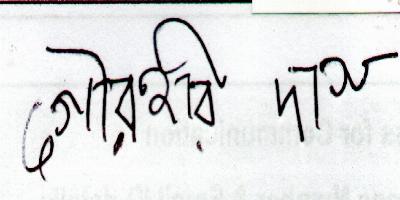 গৌরহরি দাস